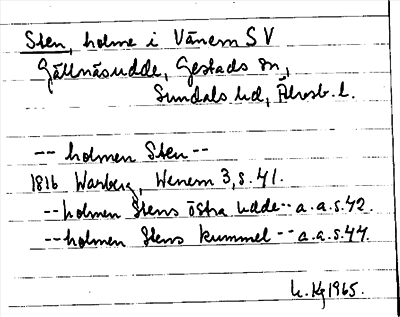 Sten, holme i Vänern SV
Gällnäsudde, Gestads sn,
Sundals hd, Älvsb. l.
-- holmen Sten --
1816 Warberg, Wenern 3, s. 41.
-- holmen Stens östra udde -- a.a.s. 42.
-- holmen Stens kummel -- a.a.s. 44.
1965.